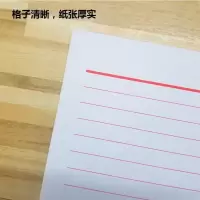 格子清晰，纸张厚实